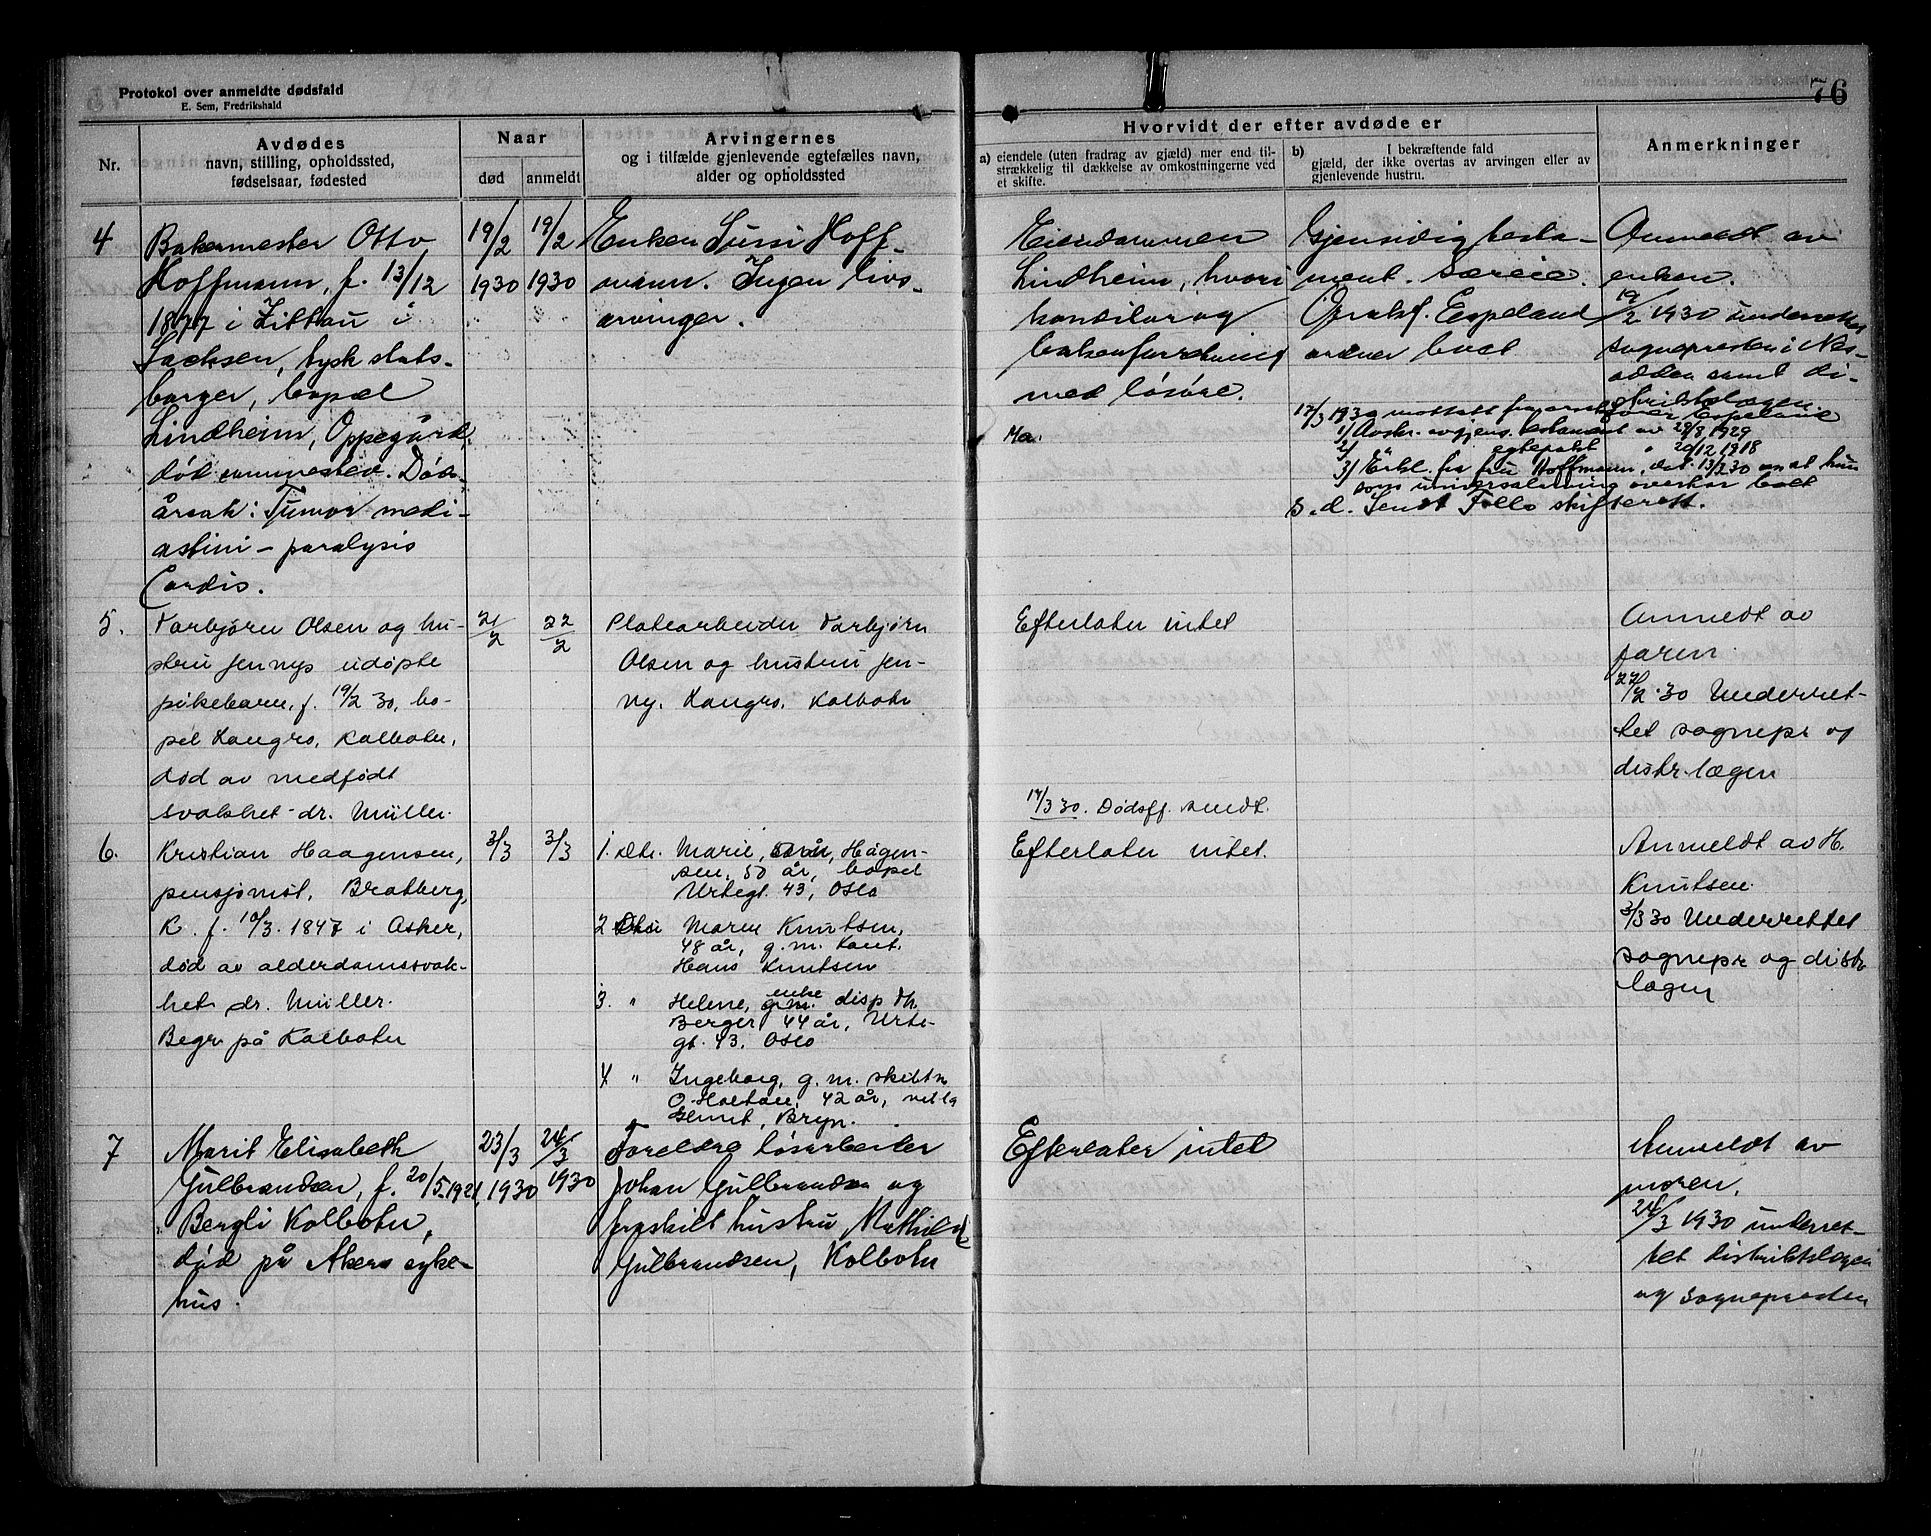 Protokol over anmeldte dødsfald
E. Sem, Fredrikshald
76
Nr.
Avdødes
navn, stilling, opholdssted,
fødselsaar, fødested
Naar
død
anmeldt
Arvingernes
og i tilfælde gjenlevende egtefælles navn,
alder og opholdssted
Hvorvidt der efter avdøde er
a) eiendele (uten fradrag av gjæld) mer end til-
strækkelig til dækkelse av omkostningerne ved
et skifte.
b) I bekræftende fald
gjæld, der ikke overtas av arvingen eller av
gjenlevende hustru.
Anmerkninger
4
Bakermester Otto
Hoffmann, f. 13/12
1877 i Zittau i
Sachsen, tysk stats-
borger, bopæl
Lindheim, Oppegård,
død sammested. Døds-
årsak: Tumor medi-
astini - paralysis
Cordis.
19/2
1930
19/2
1930
Enken Sussi Hoff-
mann. Ingen livs-
arvinger.
Eiendommen
Lindheim, hvori
konditor og
bakerforretning
med løsøre.
Gjensidig testa-
ment. Særeie.
Orsakf. Espeland
ordner boet
Anmeldt av
enken.
19/2 1930 underrettet
sognepresten i Nes-
odden samt di-
striktslægen.
17/3 1930 mottatt fra Espeland
1/ Avskr. av gjens. testament av 28/8 1929
2/ " egtepakt " 20/12 1918
3/ Erkl. fra fru Hoffmann, dat. 13/3 30 om at hun
som universalarving overtar boet
s. d. Sendt Follo skifterett.
5.
Torbjørn Olsen og hu-
stru Jennys udøpte
pikebarn, f. 19/2 30, bo-
pel Langro, Kolbotn,
død av medfødt
svakhet - dr. Müller.
21/2
22/2
Platearbeider Torbjørn
Olsen og hustru Jen-
ny. Langro. Kolbotn
Efterlater intet
17/3 30. Dødsf. sendt.
Anmeldt av
faren.
22/2 30 Underret-
tet sognepr og
distr. lægen
6.
Kristian Haagensen,
pensjonist, Bratberg,
K. f. 10/3. 1847 i Asker,
død av alderdomssvak-
het dr. Müller.
Begr. på Kolbotn
3/3
3/3
1. Dtr. Marie, Hågen-
sen, 50 år, bopel
Urtegt. 43, Oslo
2 Maren Knutsen,
48 år, g. m. Kont.
Hans Knutsen
3. " Helene, enke disp Th.
Berger 44 år, Urte-
gt. 43. Oslo
4 " Ingeborg, g. m. skiltm
O. Holtan, 42 år, villa
Bryn.
Efterlater intet.
Anmeldt av H.
Knutsen.
3/3 30 Underrettet
sognepr og distr
lægen
7
Marit Elisabeth
Gulbrandsen, f. 20/5 1921,
Bergli Kolbotn,
død på Akers syke-
hus.
23/3
1930
24/3
1930
Foreldre løsarbeider
Johan Gulbrandsen og
fraskilt hustru Mathilde
Gulbrandsen, Kolbotn
Efterlater intet
Anmeldt av
moren.
24/3 1930 underret-
tet distriktslægen
og sognepresten